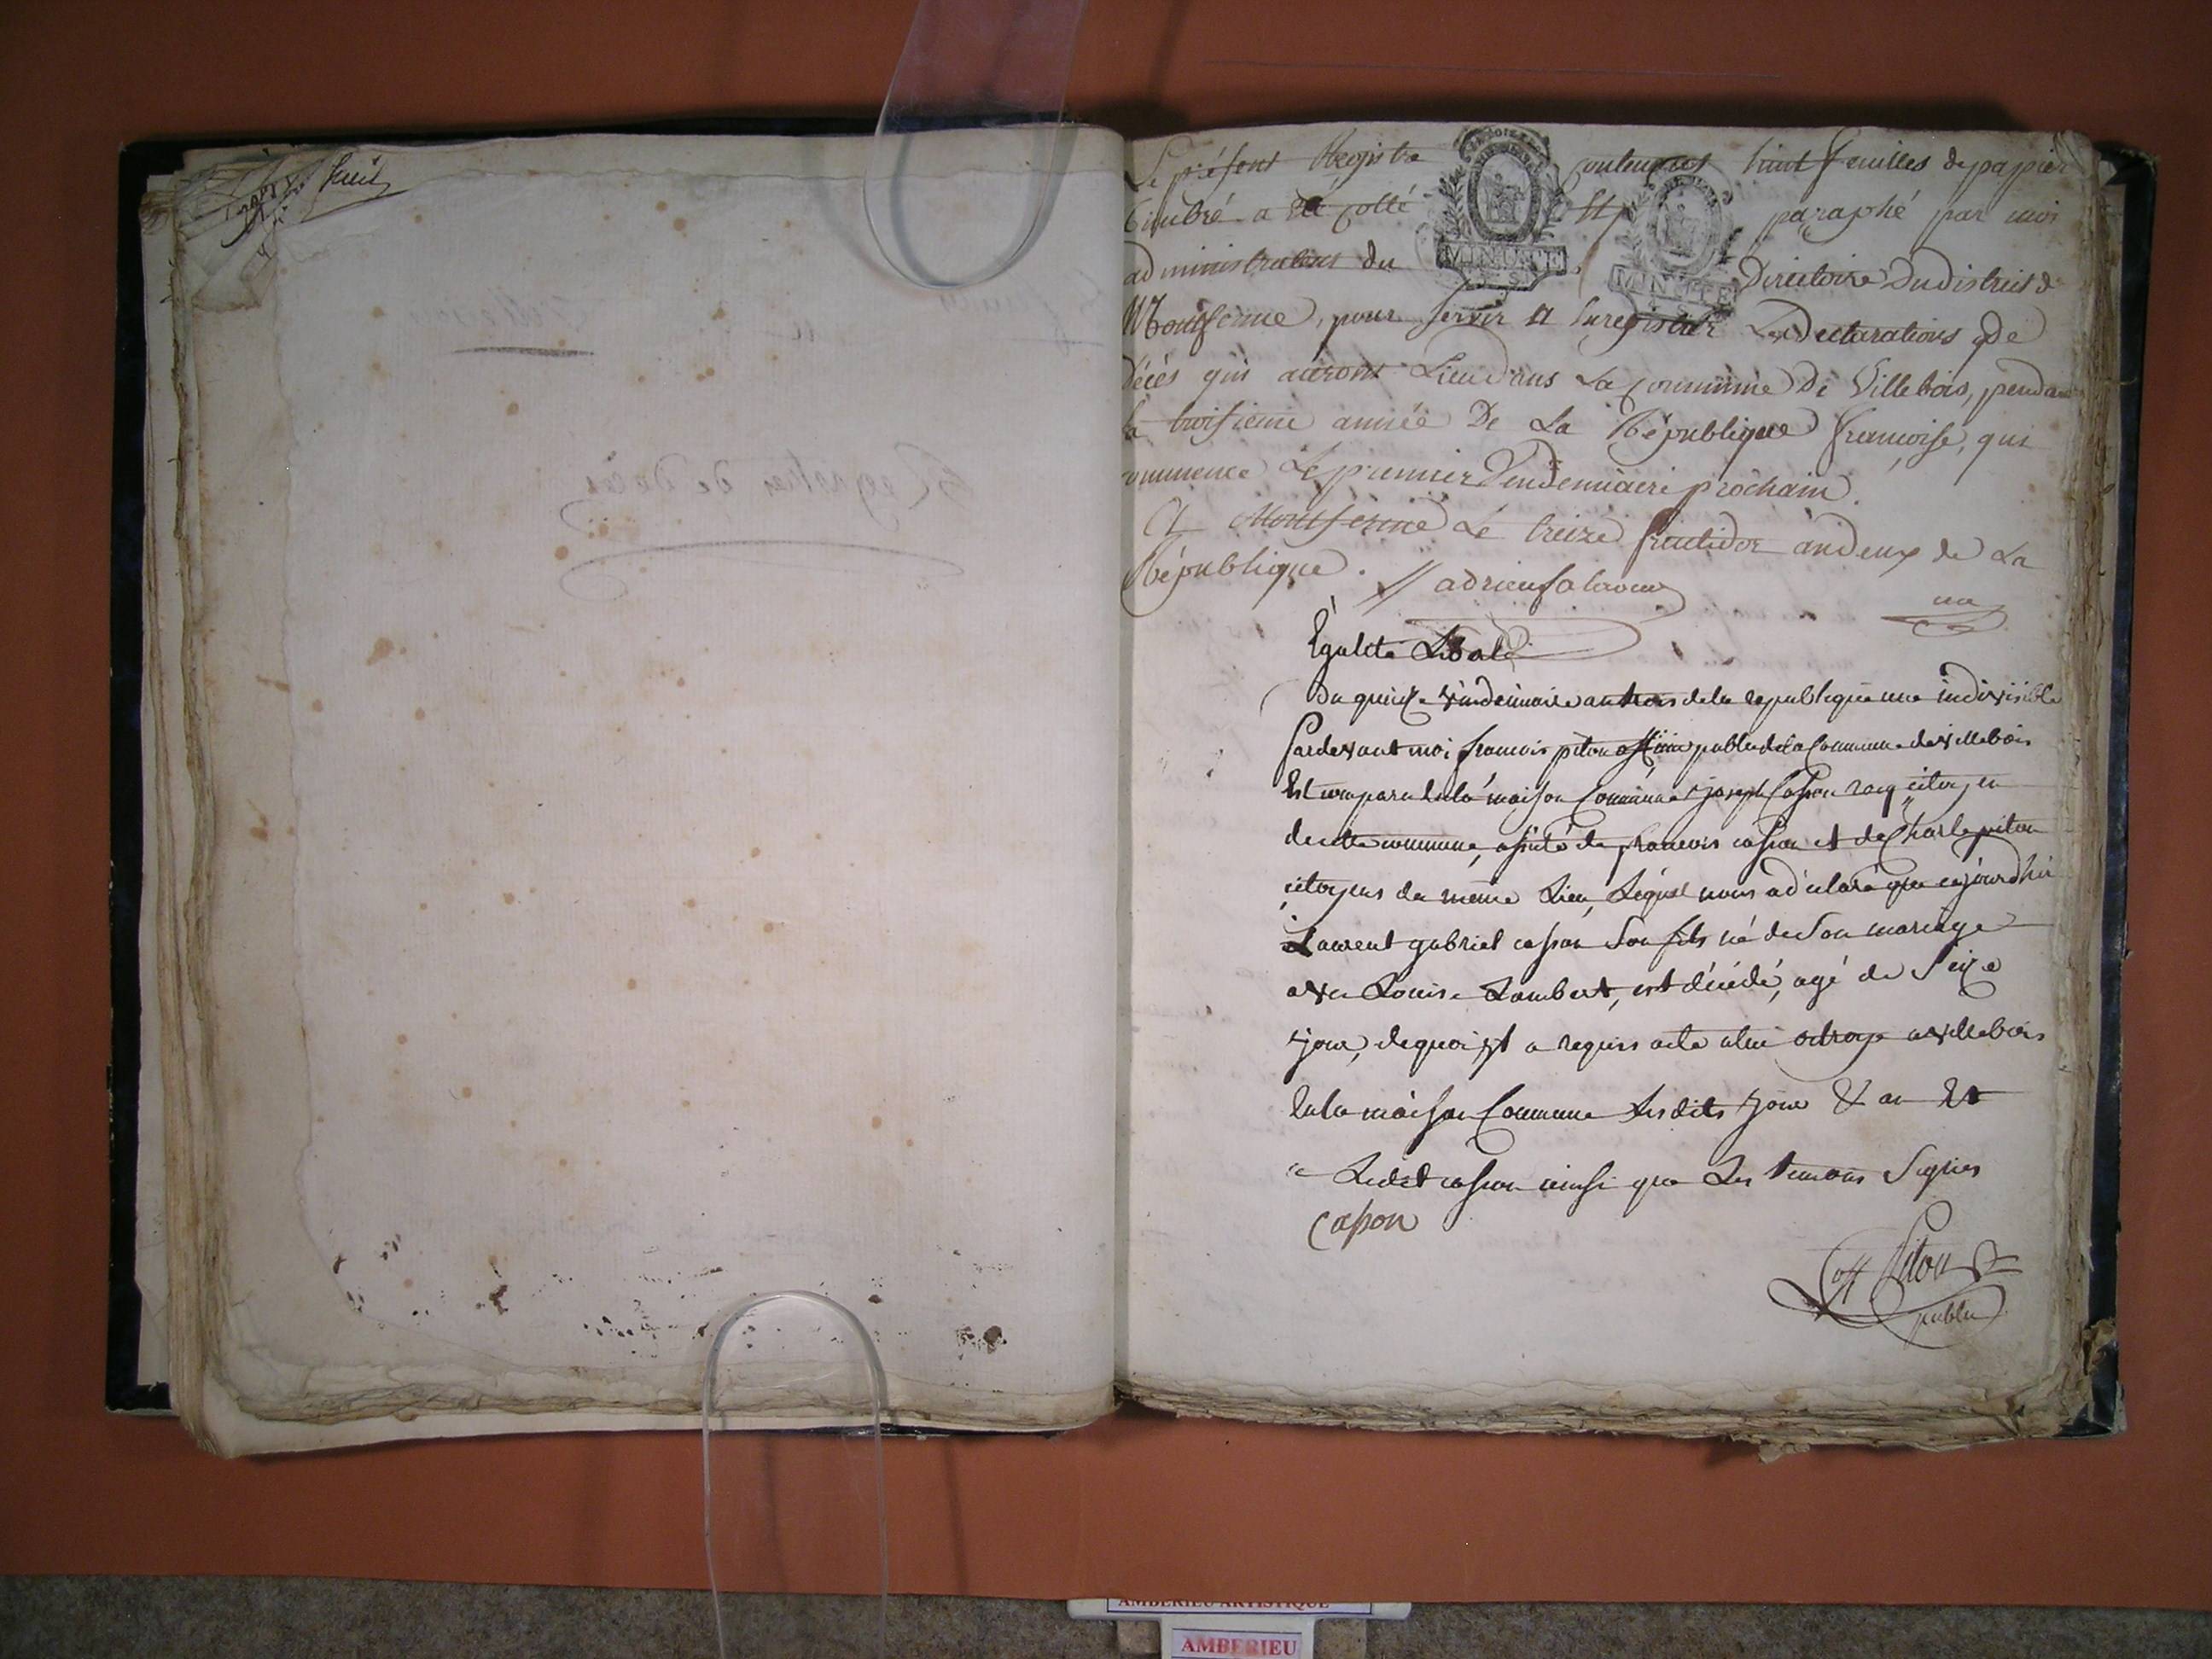 huit
Le présent Registre contenant huit feuilles de papier
timbré a été cotté et paraphé par moi
administrateur du Directoire du district de
Montferme, pour servir a Enregistrer Les Declarations de
décès qui auront Lieu dans La Commune De Villebois, pendant
la troisieme année De La République françoise, qui
commence Le premier Vendemiaire prochain.
A Montferme Le treize fructidor an deux de La
République.
MINUTE
MINUTE
un
Égalité Liberté
Du quinze vindemiaire an trois de la republique une indivisible
Pardevant moi francois piton officier public de la Commune de villebois
Est comparu en la maison Commune joseph Casson citoyen
de cette commune, assisté de francois casson et de Charle piton
citoyens du même Lieu, Lequel nous a déclaré que cejourdhui
Laurent gabriel casson Son fils né de Son mariage
avec Louise Lambert, est décédé, agé de Seize
jour, de quoi il a requis acte a lui octroyé a villebois
En la maison Commune Les dits jour & an Et
Ledit casson ainsi que Les temoins Signés
Casson
Piton off
public
AMBERIEU ARTISTIQUE
AMBERIEU